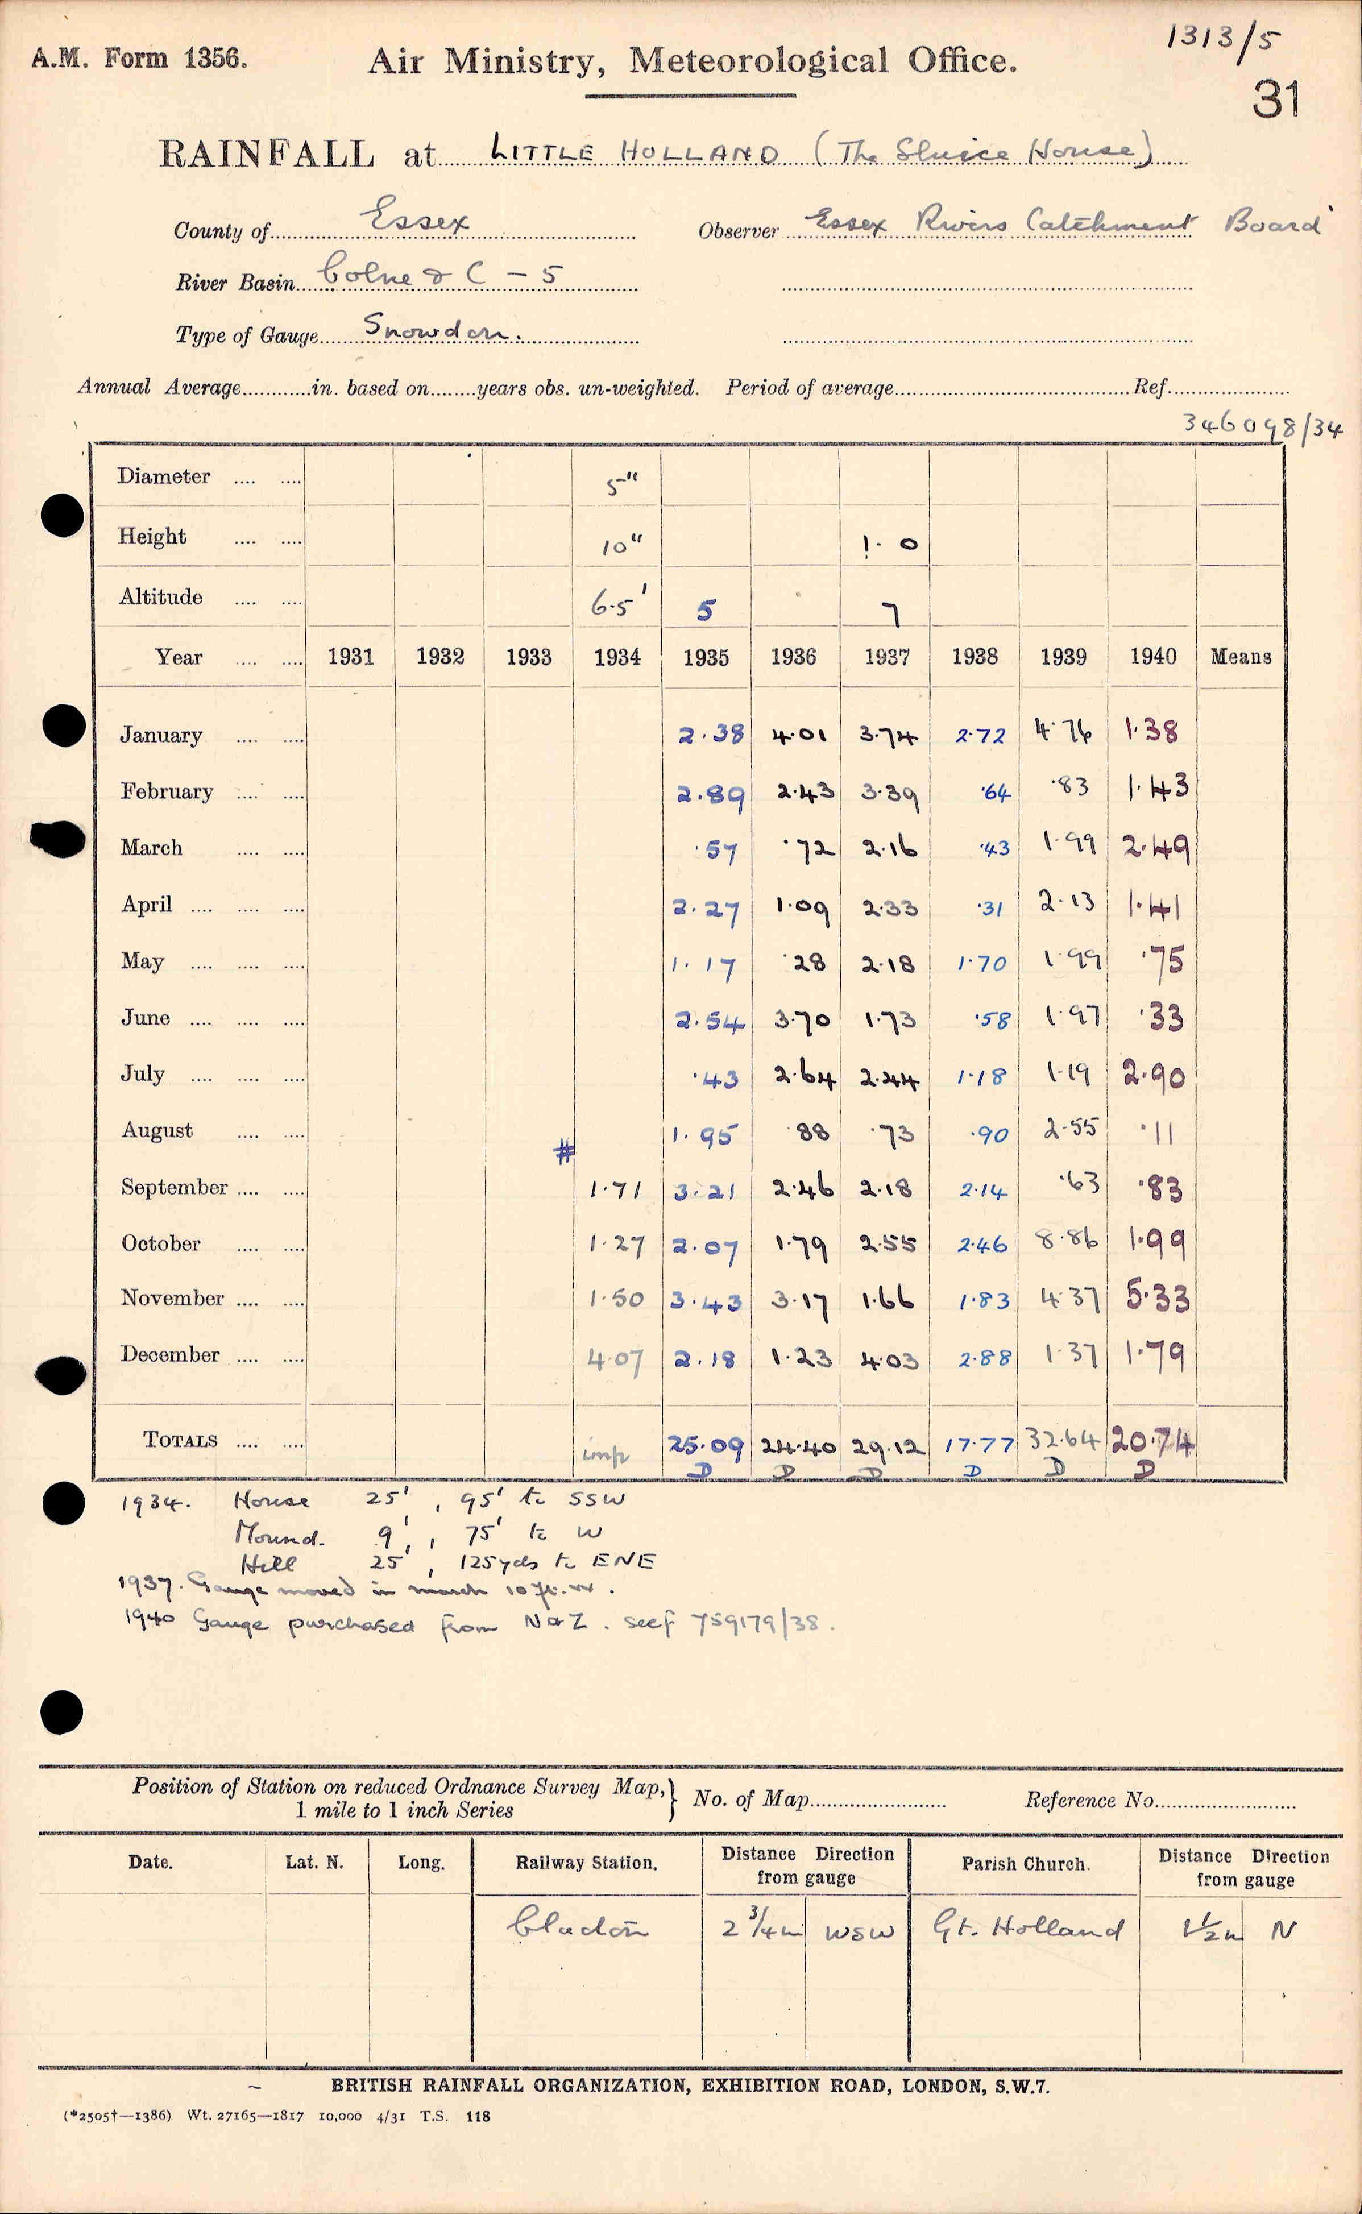 1313/5
A.M. Form 1356. Air Ministry, Meteorological Office.
31
RAINFALL at LITTLE HOLLAND (The Sluice House)
County of Essex Observer Essex Rivers Catchment Board
River Basin Colne & C - 5
Type of Gauge Snowdon.
Annual Average............in. based on........years obs. un-weighted. Period of average........................................Ref.....................
346098/34
Diameter .... .... 5"
Height .... .... 10" 1. 0
Altitude .... .... 6.5' 5 7
Year .... .... 1931 1932 1933 1934 1935 1936 1937 1938 1939 1940 Means
January .... .... 2.38 4.01 3.74 2.72 4.76 1.38
February .... .... 2.89 2.43 3.39 .64 .83 1.43
March .... .... .57 .72 2.16 .43 1.99 2.49
April .... .... .... 2.27 1.09 2.33 .31 2.13 1.41
May .... .... .... 1.17 .28 2.18 1.70 1.99 .75
June .... .... .... 2.54 3.70 1.73 .58 1.97 .33
July .... .... .... .43 2.64 2.44 1.18 1.19 2.90
August .... .... # 1.95 .88 .73 .90 2.55 .11
September .... .... 1.71 3.21 2.46 2.18 2.14 .63 .83
October .... .... 1.27 2.07 1.79 2.55 2.46 8.86 1.99
November .... .... 1.50 3.43 3.17 1.66 1.83 4.37 5.33
December .... .... 4.07 2.18 1.23 4.03 2.88 1.37 1.79
TOTALS .... .... imp 25.09 24.40 29.12 17.77 32.64 20.74
D D D D D D
1934. House 25', 95' to SSW
Mound. 9', 75' to W
Hill 25', 125yds to ENE
1937. Gauge moved in march 10 ft. W.
1940 Gauge purchased from N & Z. see 759179/38.
Position of Station on reduced Ordnance Survey Map,} No. of Map........................ Reference No.........................
1 mile to 1 inch Series
Date. Lat. N. Long. Railway Station. Distance Direction Parish Church. Distance Direction
from gauge from gauge
Clacton 2 3/4 m WSW Gt. Holland 1 1/2 m N
BRITISH RAINFALL ORGANIZATION, EXHIBITION ROAD, LONDON, S.W.7.
(*2505†—1386) Wt. 27165—1817 10,000 4/31 T.S. 118